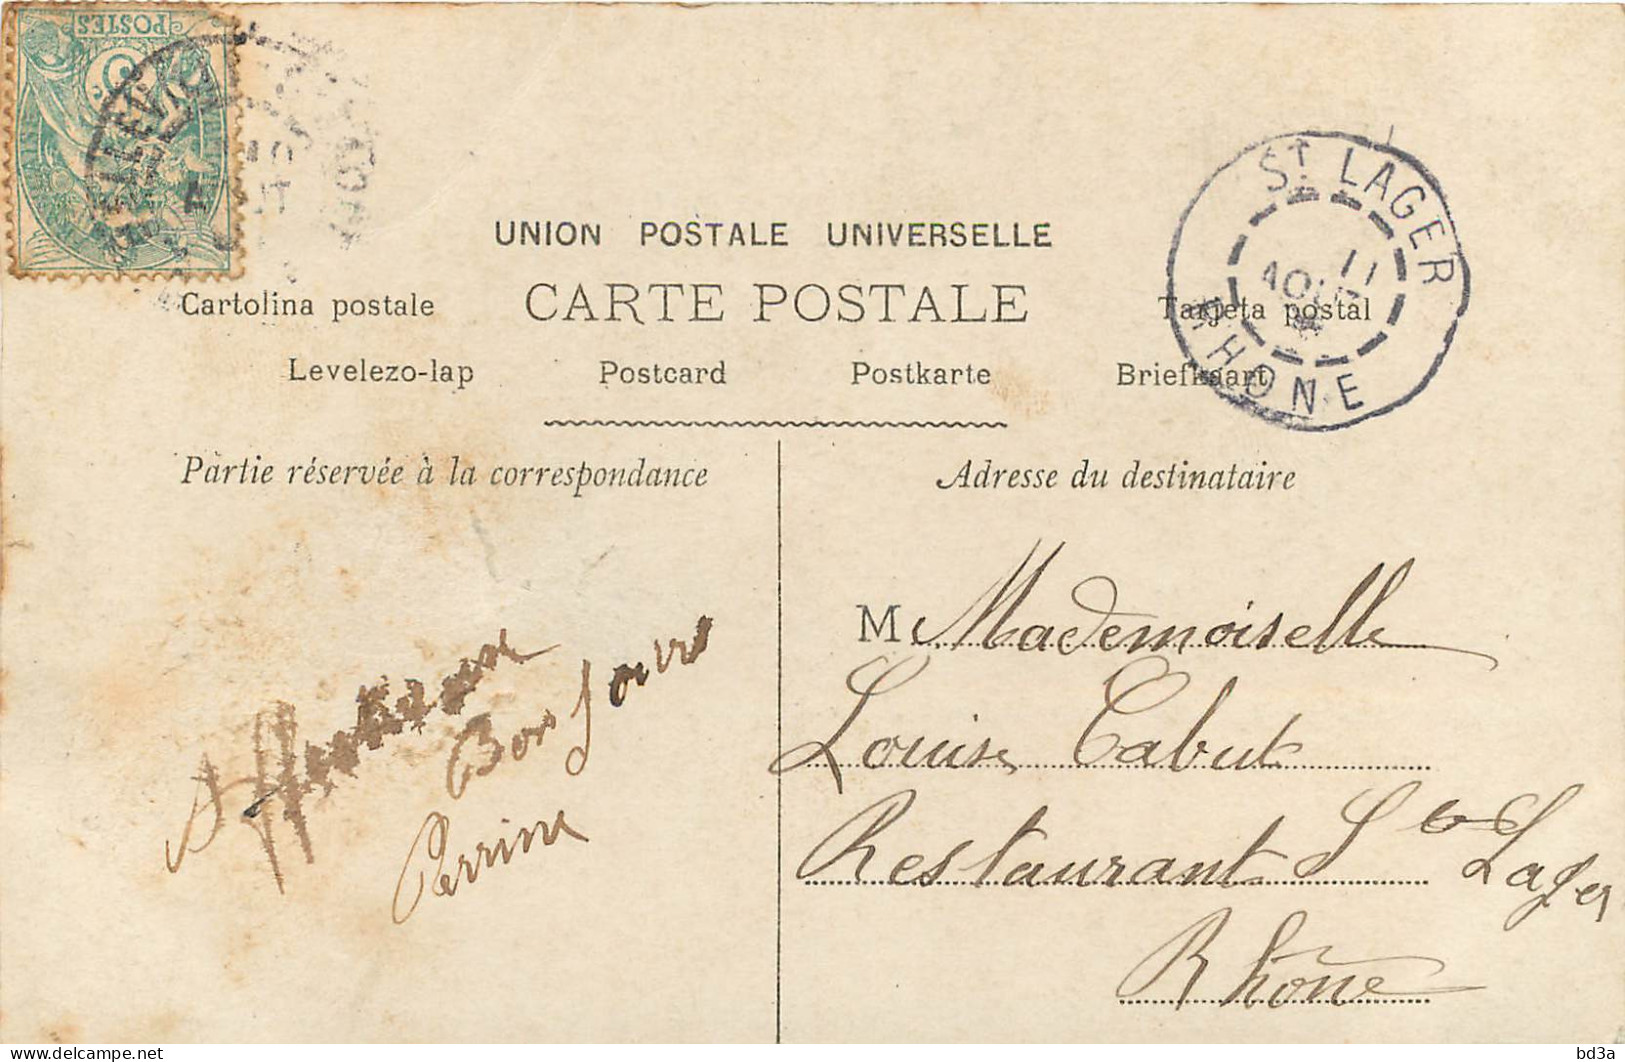 POSTES
5
UNION POSTALE UNIVERSELLE
CARTE POSTALE
Cartolina postale
Tarjeta postal
Levelezo-lap
Postcard
Postkarte
Briefkaart
ST LAGER
11
AOUT
RHONE
10
Partie réservée à la correspondance
Adresse du destinataire
M Mademoiselle
Louise Cabut
Restaurant St Lager
Rhône
Bon Jour
Perrine
bd3a